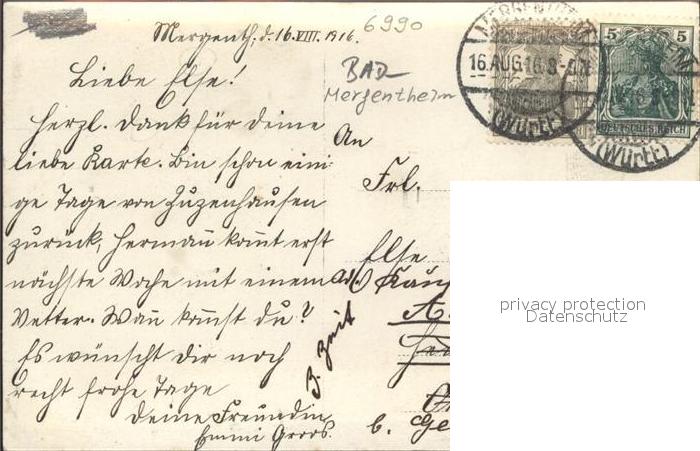 6990
Mergenth, d. 16.VIII. 1916.
Liebe Else!
Herzl. Dank für deine
liebe Karte. Bin schon eini-
ge Tage von Zuzenhausen
zurück, Hermañ kom̃t erst
nächste Woche mit einem
Vetter. Wañ kom̃st du?
Es wünscht dir noch
recht frohe Tage
deine Freundin
Emmi Groos.
BAD
Mergentheim
An
Frl.
Else
A.
z. Zeit
b.
MERGENTHEIM
16.AUG.16.8-9V
(WÜRTT.)
5 5
DEUTSCHES REICH
(WÜRTT.)
privacy protection
Datenschutz